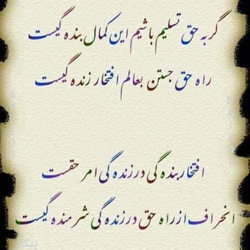 گر به حق تسلیم باشیم این کمال بنده گیست
راه حق جستن بعالم افتخار زنده گیست
افتخار بنده گی در زنده گی امر حقست
انحراف از راه حق در زنده گی شرمنده گیست